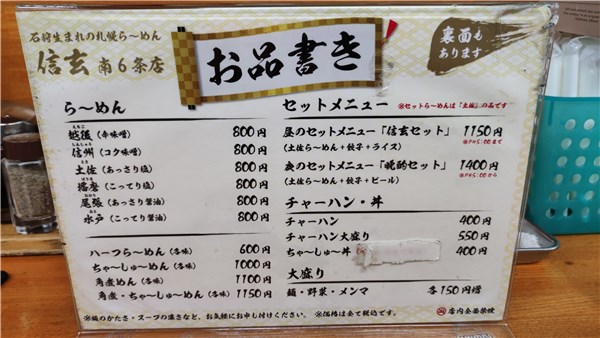 石狩生まれの札幌ら〜めん
信玄 南6条店
お品書き
裏面も
あります
ら〜めん
越後(辛味噌) 800円
信州(コク味噌) 800円
土佐(あっさり塩) 800円
播磨(こってり塩) 800円
尾張(あっさり醤油) 800円
水戸(こってり醤油) 800円
ハーフら〜めん(各味) 600円
ちゃーしゅ〜めん(各味) 1000円
角煮めん(各味) 1100円
角煮・ちゃーしゅ〜めん(各味) 1150円
セットメニュー ※セットら〜めんは「土佐」の品です
昼のセットメニュー「信玄セット」 1150円
(土佐ら〜めん+餃子+ライス) ※PM5:00まで
夜のセットメニュー「晩酌セット」 1400円
(土佐ら〜めん+餃子+ビール) ※PM5:00から
チャーハン・丼
チャーハン 400円
チャーハン大盛り 550円
ちゃ〜しゅ〜丼 400円
大盛り
麺・野菜・メンマ 各150円増
※麺のかたさ・スープの濃さなど、お気軽にお申し付けください。 ※価格は全て税込です。
店内全面禁煙